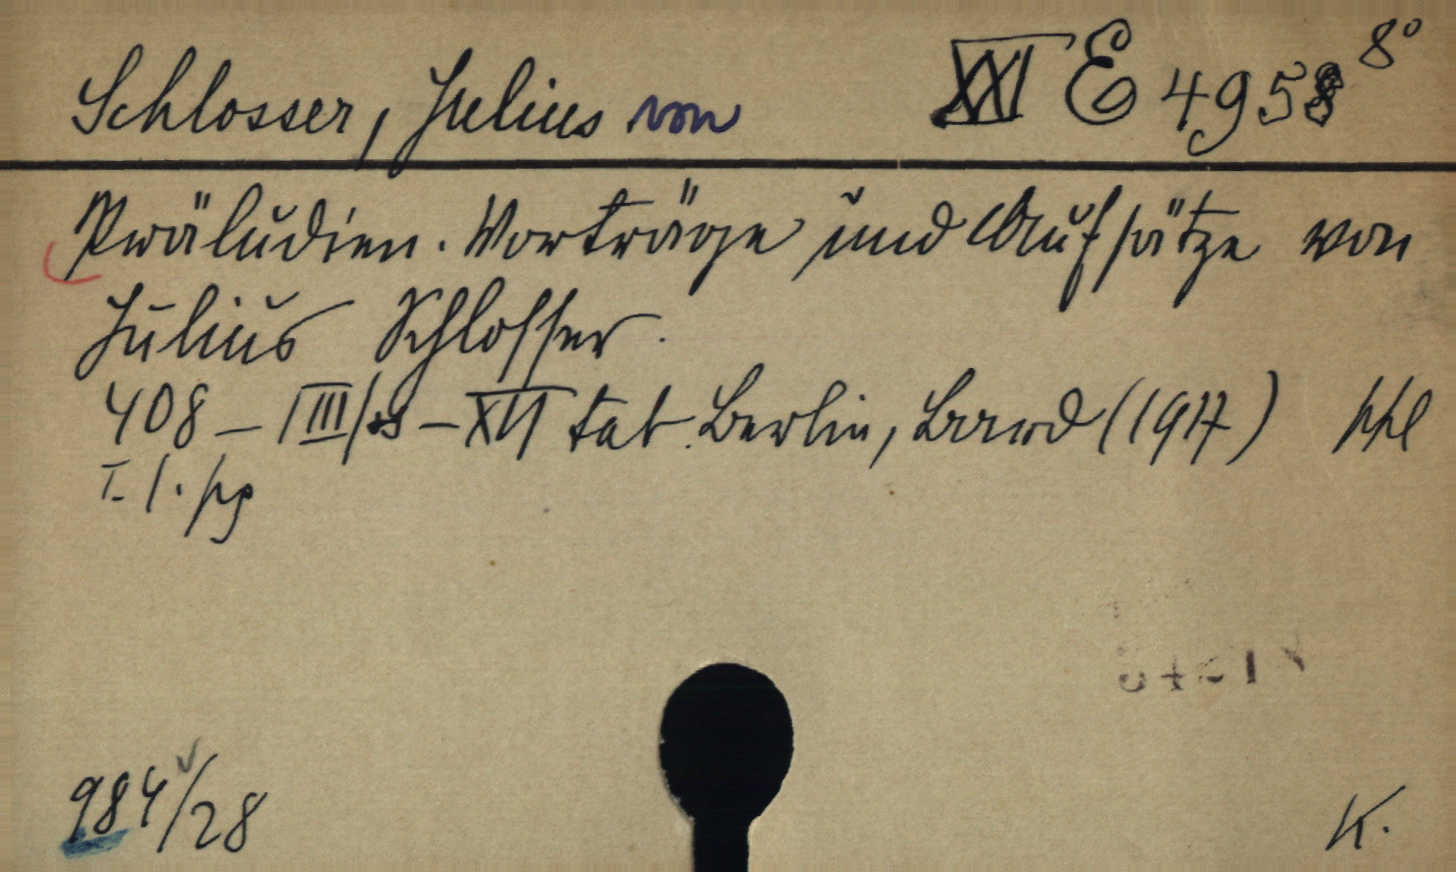 Schlosser, Julius von XXI E 4958 8°
Präludien. Vorträge und Aufsätze von
Julius Schlosser.
408 – III – XVI tab. Berlin, Bard (1917)
984/28
K.